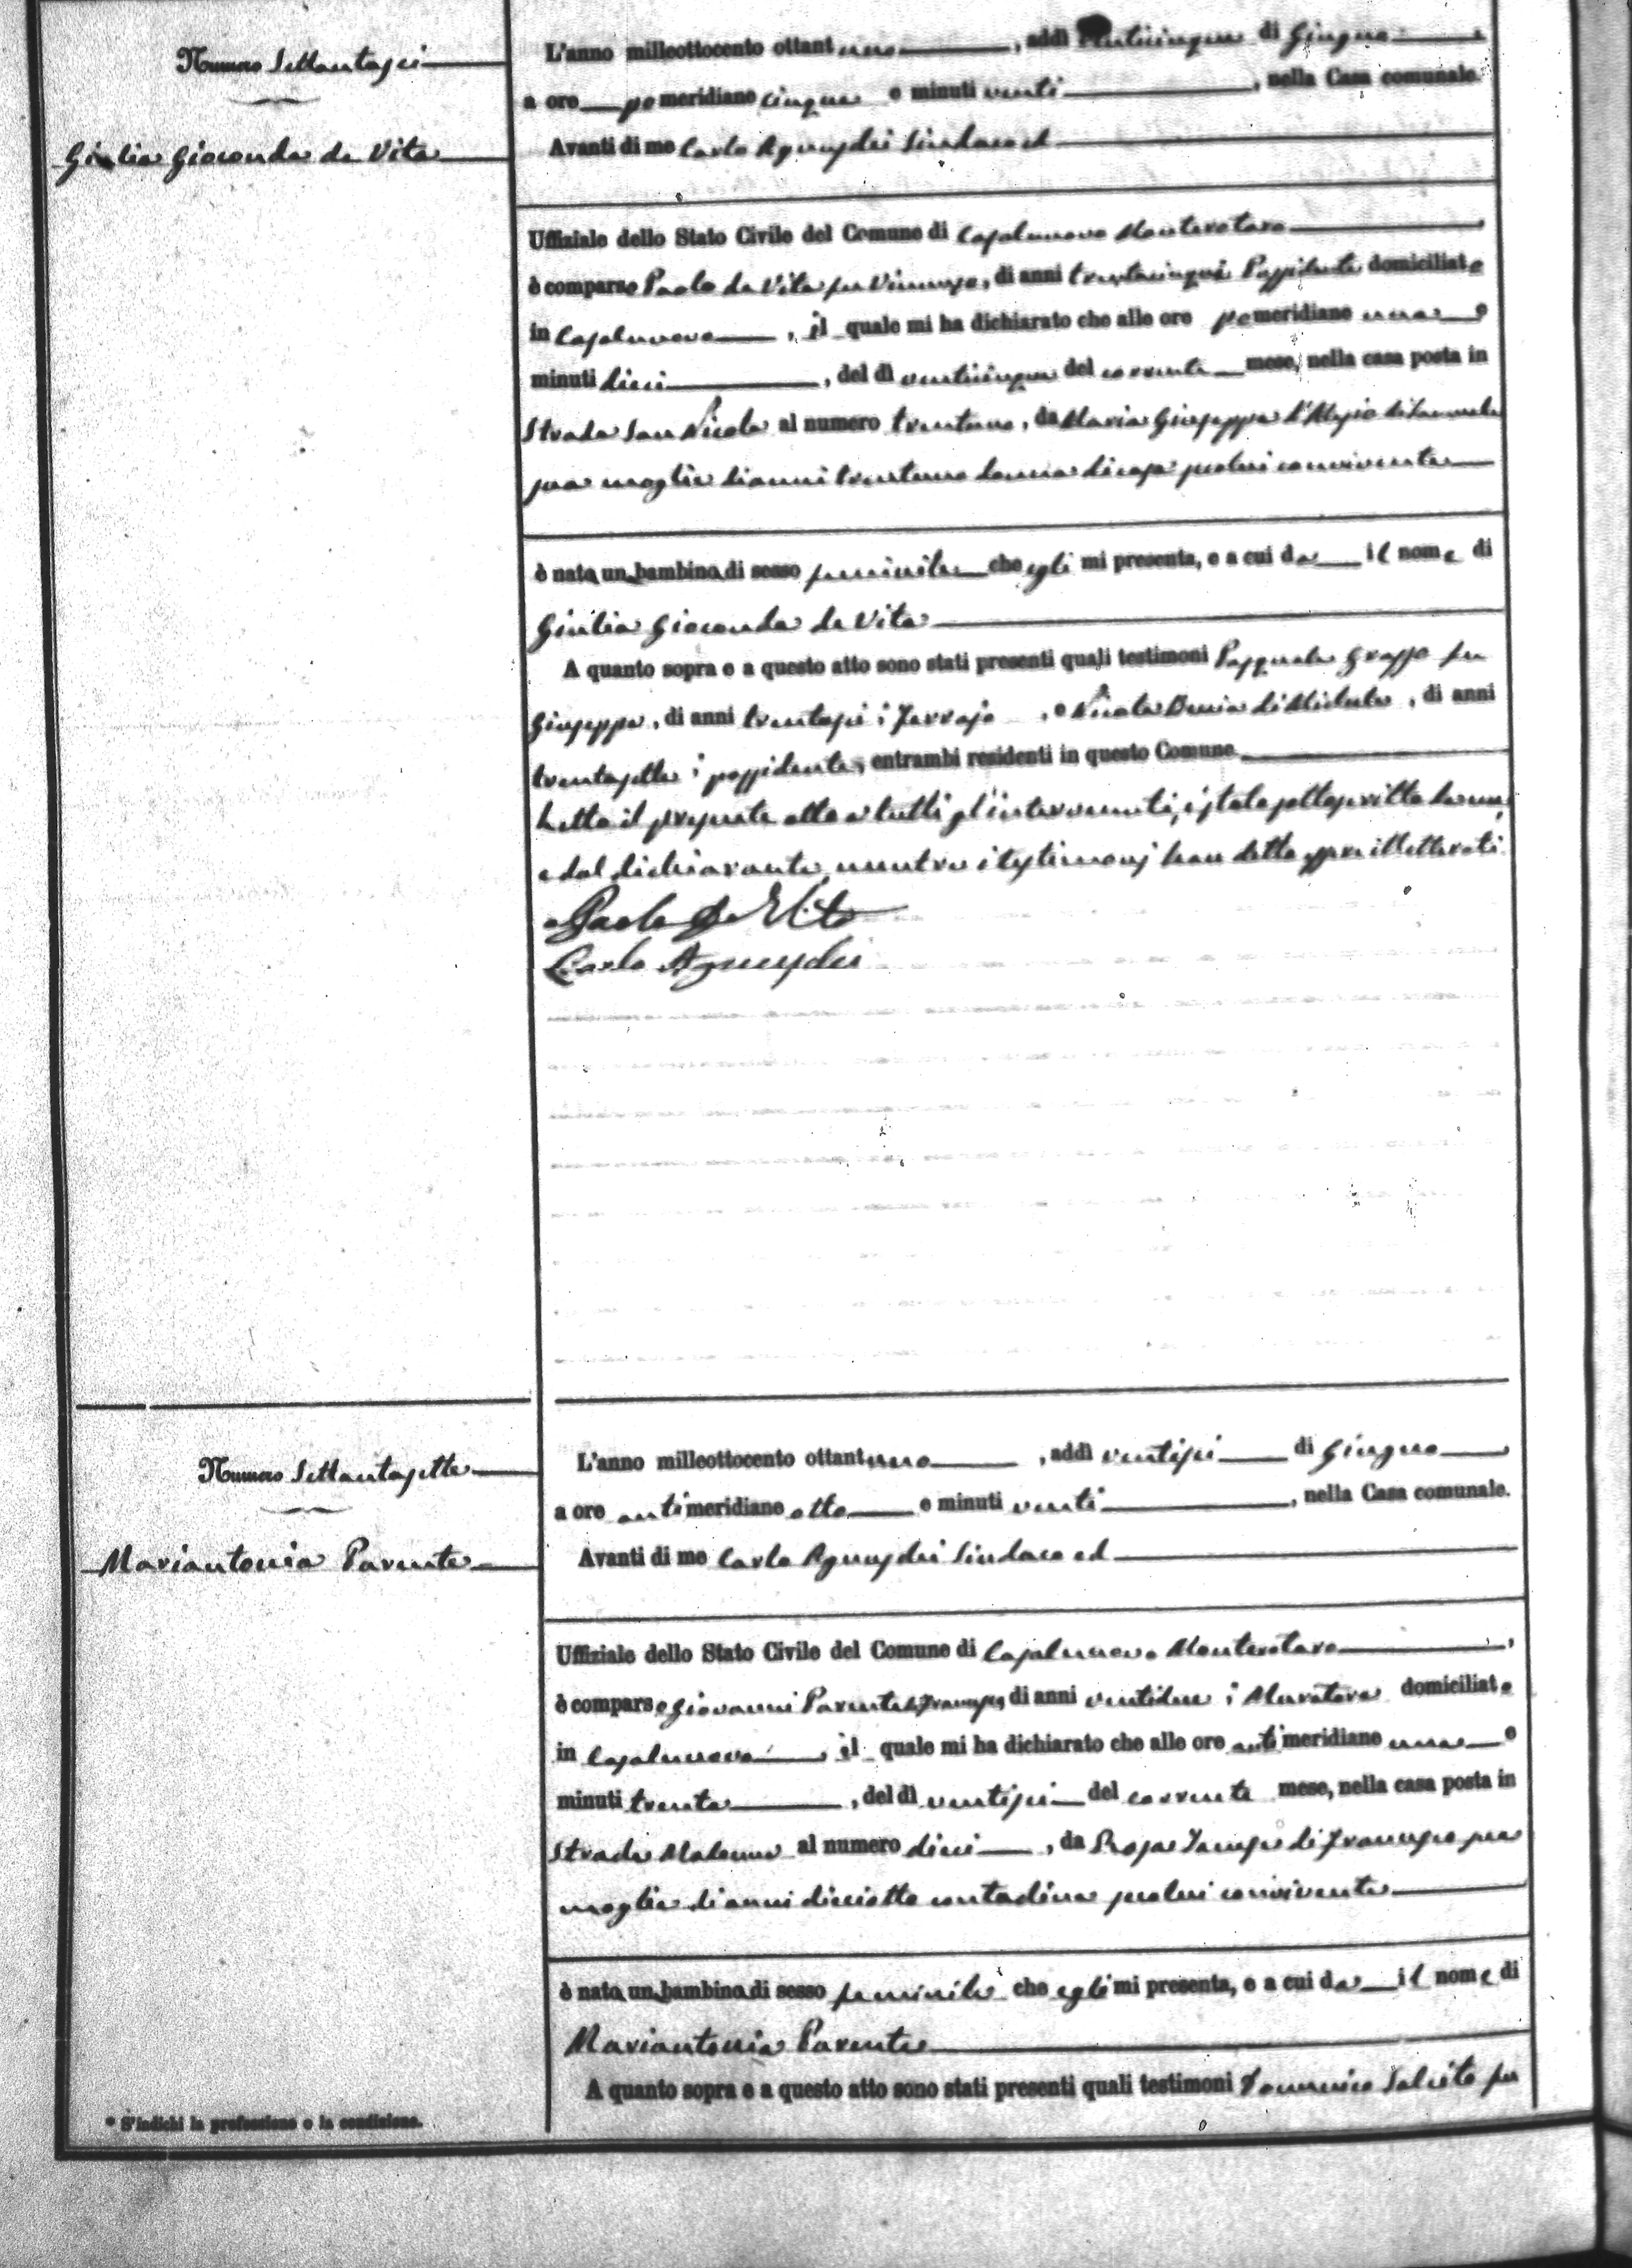 Numero Settantasei
Giulia Gioconda de Vita
L'anno milleottocento ottantuno, addì venticinque di Giugno
a ore pomeridiane cinque e minuti venti, nella Casa comunale.
Avanti di me Carlo Sindaco ed
Uffiziale dello Stato Civile del Comune di Casalnuovo Monterotaro
è comparso Paolo de Vita fu Vincenzo, di anni trentacinque Possidente domiciliato
in Casalnuovo, il quale mi ha dichiarato che alle ore pomeridiane una e
minuti dieci, del dì venticinque del corrente mese, nella casa posta in
Strada San Nicola al numero trentuno, da Maria Giuseppa d'Alesio di
sua moglie di anni trentuno donna di casa seco lui convivente
è nata una bambina di sesso feminile che egli mi presenta, e a cui da il nome di
Giulia Gioconda de Vita
A quanto sopra e a questo atto sono stati presenti quali testimoni Pasquale Grasso fu
Giuseppe, di anni trentasei, e Nicola di Michele, di anni
trentasette possidente, entrambi residenti in questo Comune
Letto il presente atto a tutti gl'intervenuti, è stato sottoscritto da me,
e dal dichiarante, mentre i testimonj han detto essere illetterati.
Paolo De Vita
Carlo
Numero Settantasette
Mariantonia Parente
L'anno milleottocento ottantuno, addì ventisei di Giugno
a ore antimeridiane otto e minuti venti, nella Casa comunale.
Avanti di me Carlo Sindaco ed
Uffiziale dello Stato Civile del Comune di Casalnuovo Monterotaro,
è comparso Giovanni Parente di, di anni ventidue Muratore domiciliato
in Casalnuovo, il quale mi ha dichiarato che alle ore antimeridiane una e
minuti trenta, del dì ventisei del corrente mese, nella casa posta in
Strada al numero dieci, da Rosa di sua
moglie di anni diciotto contadina seco lui convivente
è nata una bambina di sesso feminile che egli mi presenta, e a cui da il nome di
Mariantonia Parente
A quanto sopra e a questo atto sono stati presenti quali testimoni Domenico Salcito fu
* S'indichi la professione o la condizione.